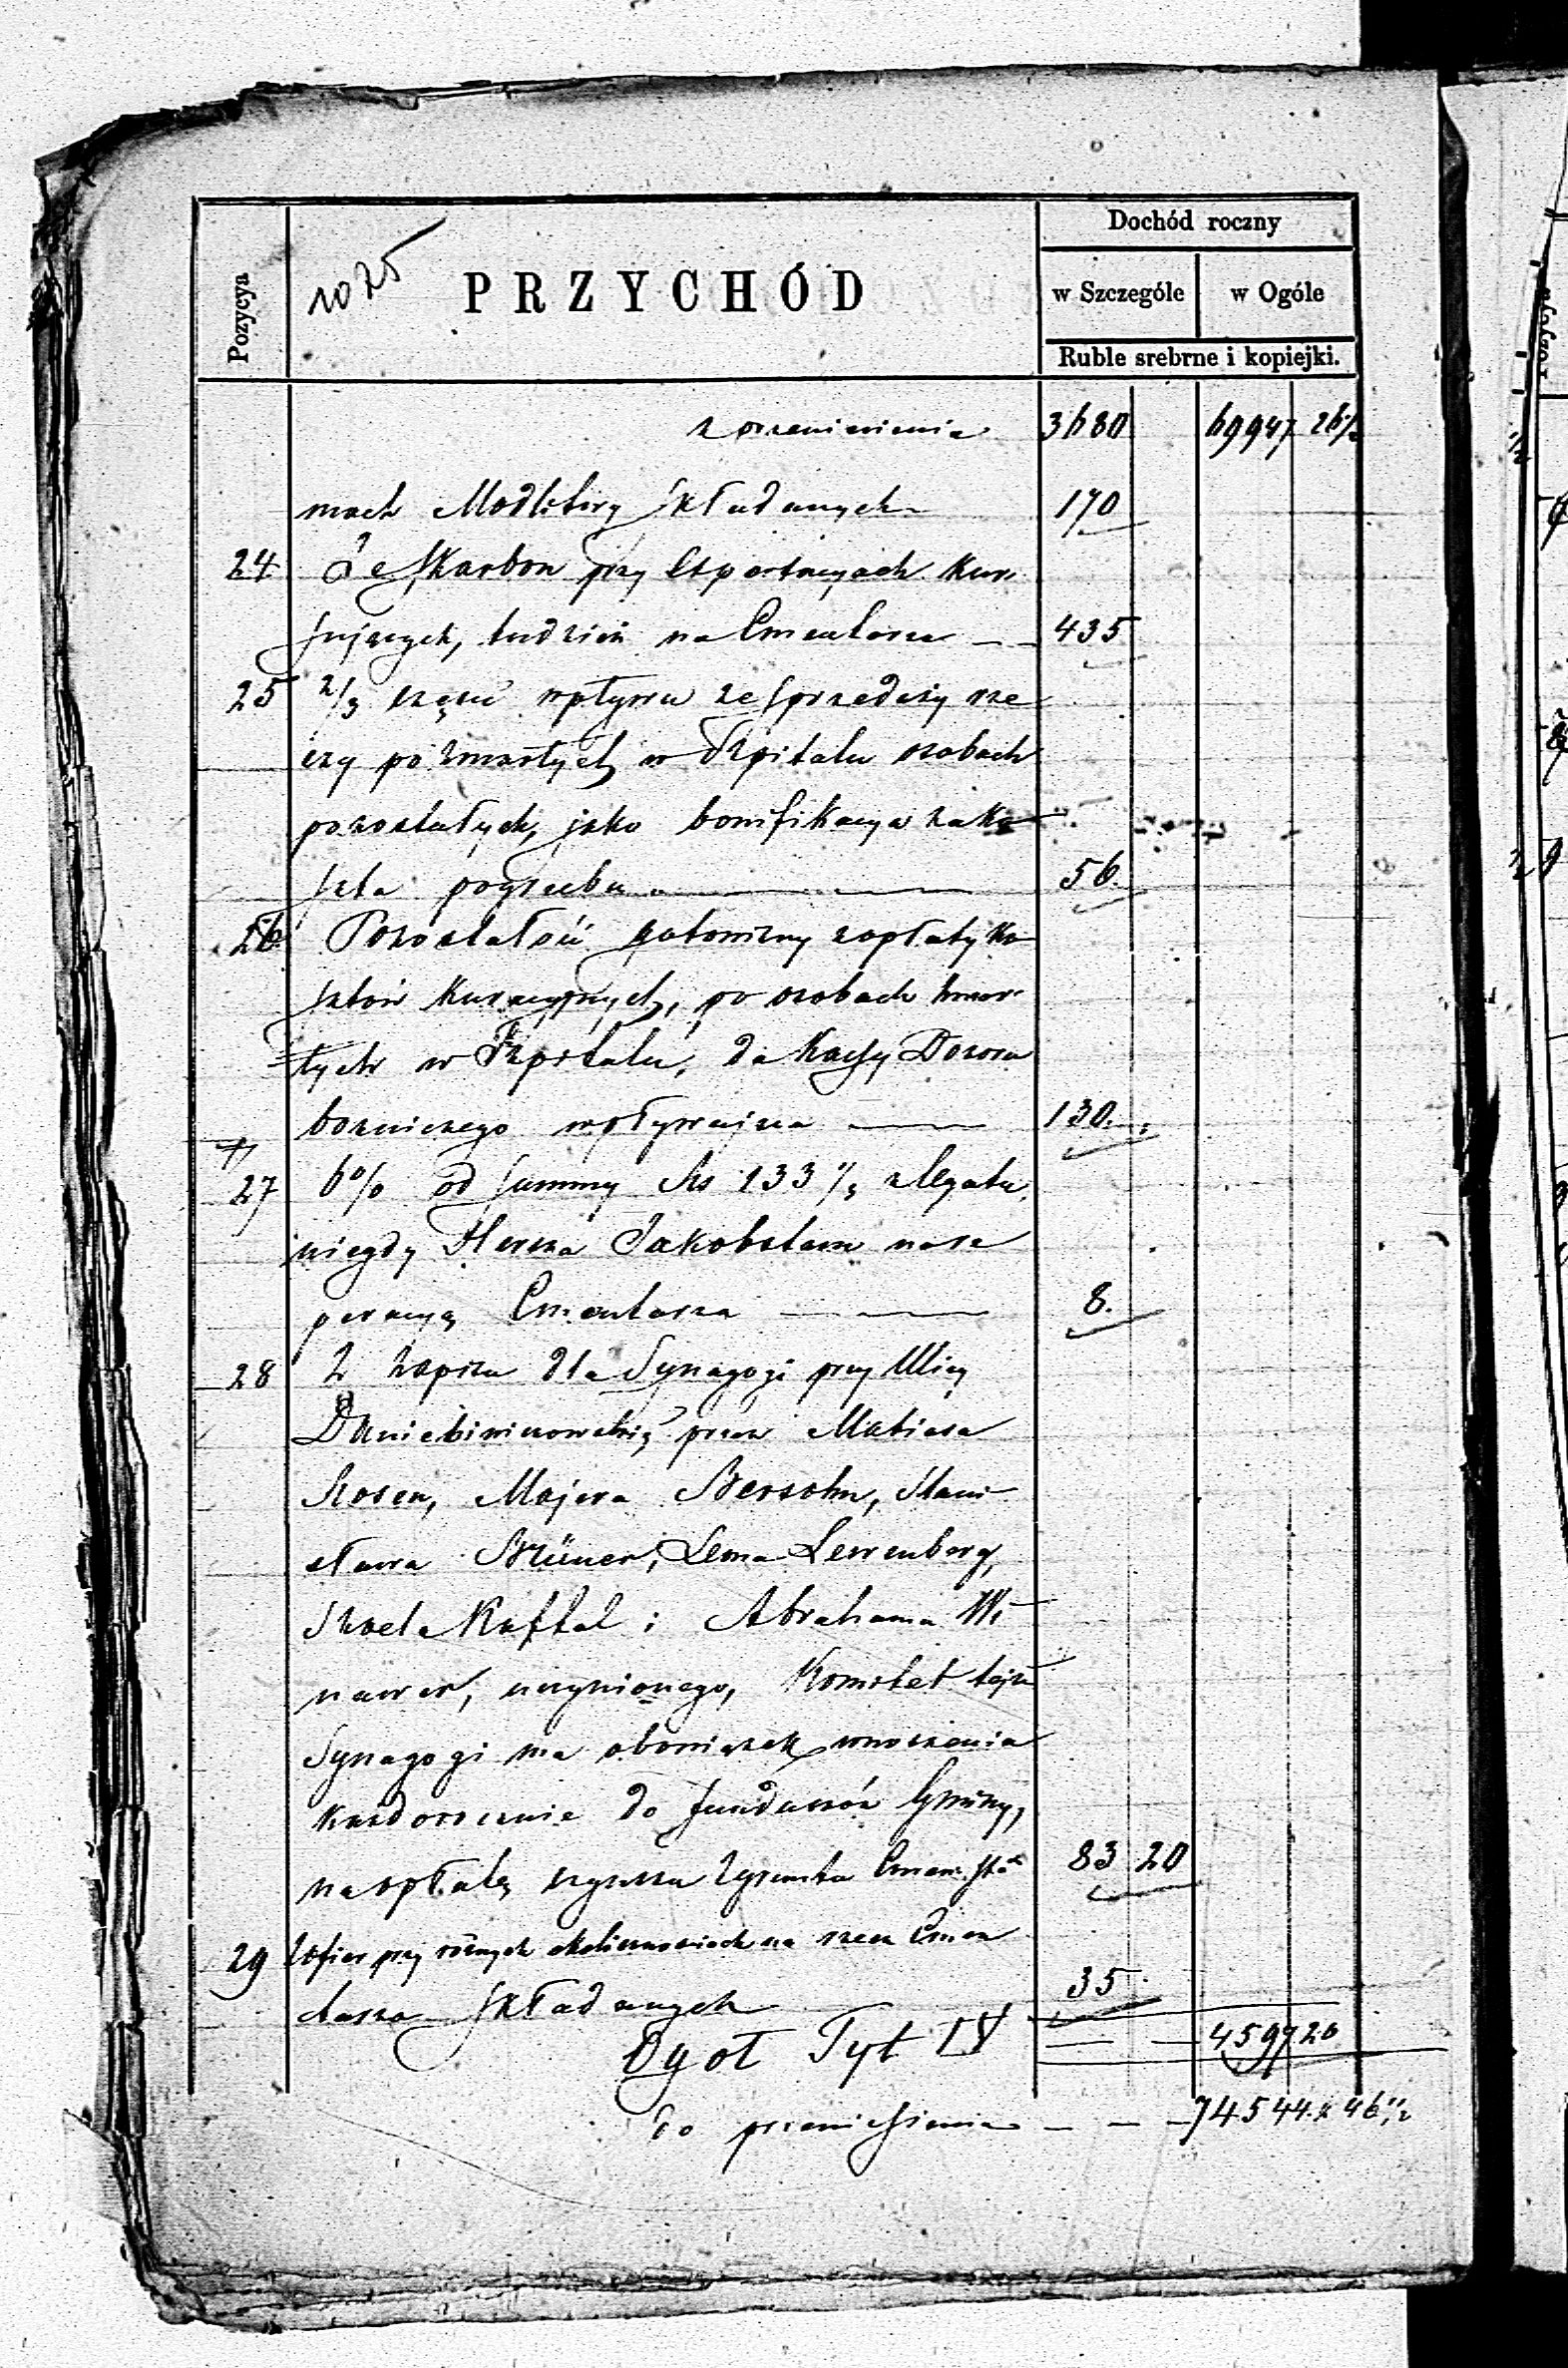 Dochód roczny
Pozycya
1025
PRZYCHÓD
w Szczególe
w Ogóle
Ruble srebrne i kopiejki.
z przeniesienia 3680 69947 26½
mach Modlitwy składanych 170
24 Ze skarbon przy Exportacyach kur
sujących, tudzież na Cmentarzu 435
25 2/3 część wpływu ze sprzedaży rze
czy po zmarłych w Szpitalu osobach
pozostałych, jako bonifikacya za ko
szta pogrzebu 56
26 Pozostałość gotowizny zapłaty ko
sztów kuracyjnych, po osobach zmar
łych w Szpitalu, do Kassy Dozoru
bożniczego wpływająca 130
27 6% od summy Rs 133 1/3 z legatu
niegdy Hersza Jakobstam na re
peracyą Cmentarza 8.
28 Z zapisu dla Synagogi przy Ulicy
Daniłowiczowskiéj przez Matiasa
Rosen, Majera Bersohn, Stani
sława Brüner, Lewenberg,
Kuftal i Abrahama Wi
nawer, uczynionego, Komitet tejże
Synagogi ma obowiązek wnoszenia
każdorocznie do funduszów Gminy,
na opłatę czynszu z gruntu 83 20
29 Z ofiar przy różnych okolicznościach na rzecz Cmen
tarza składanych 35
Ogół Tyt IV 4597 20
do przeniesienia 74544 46½